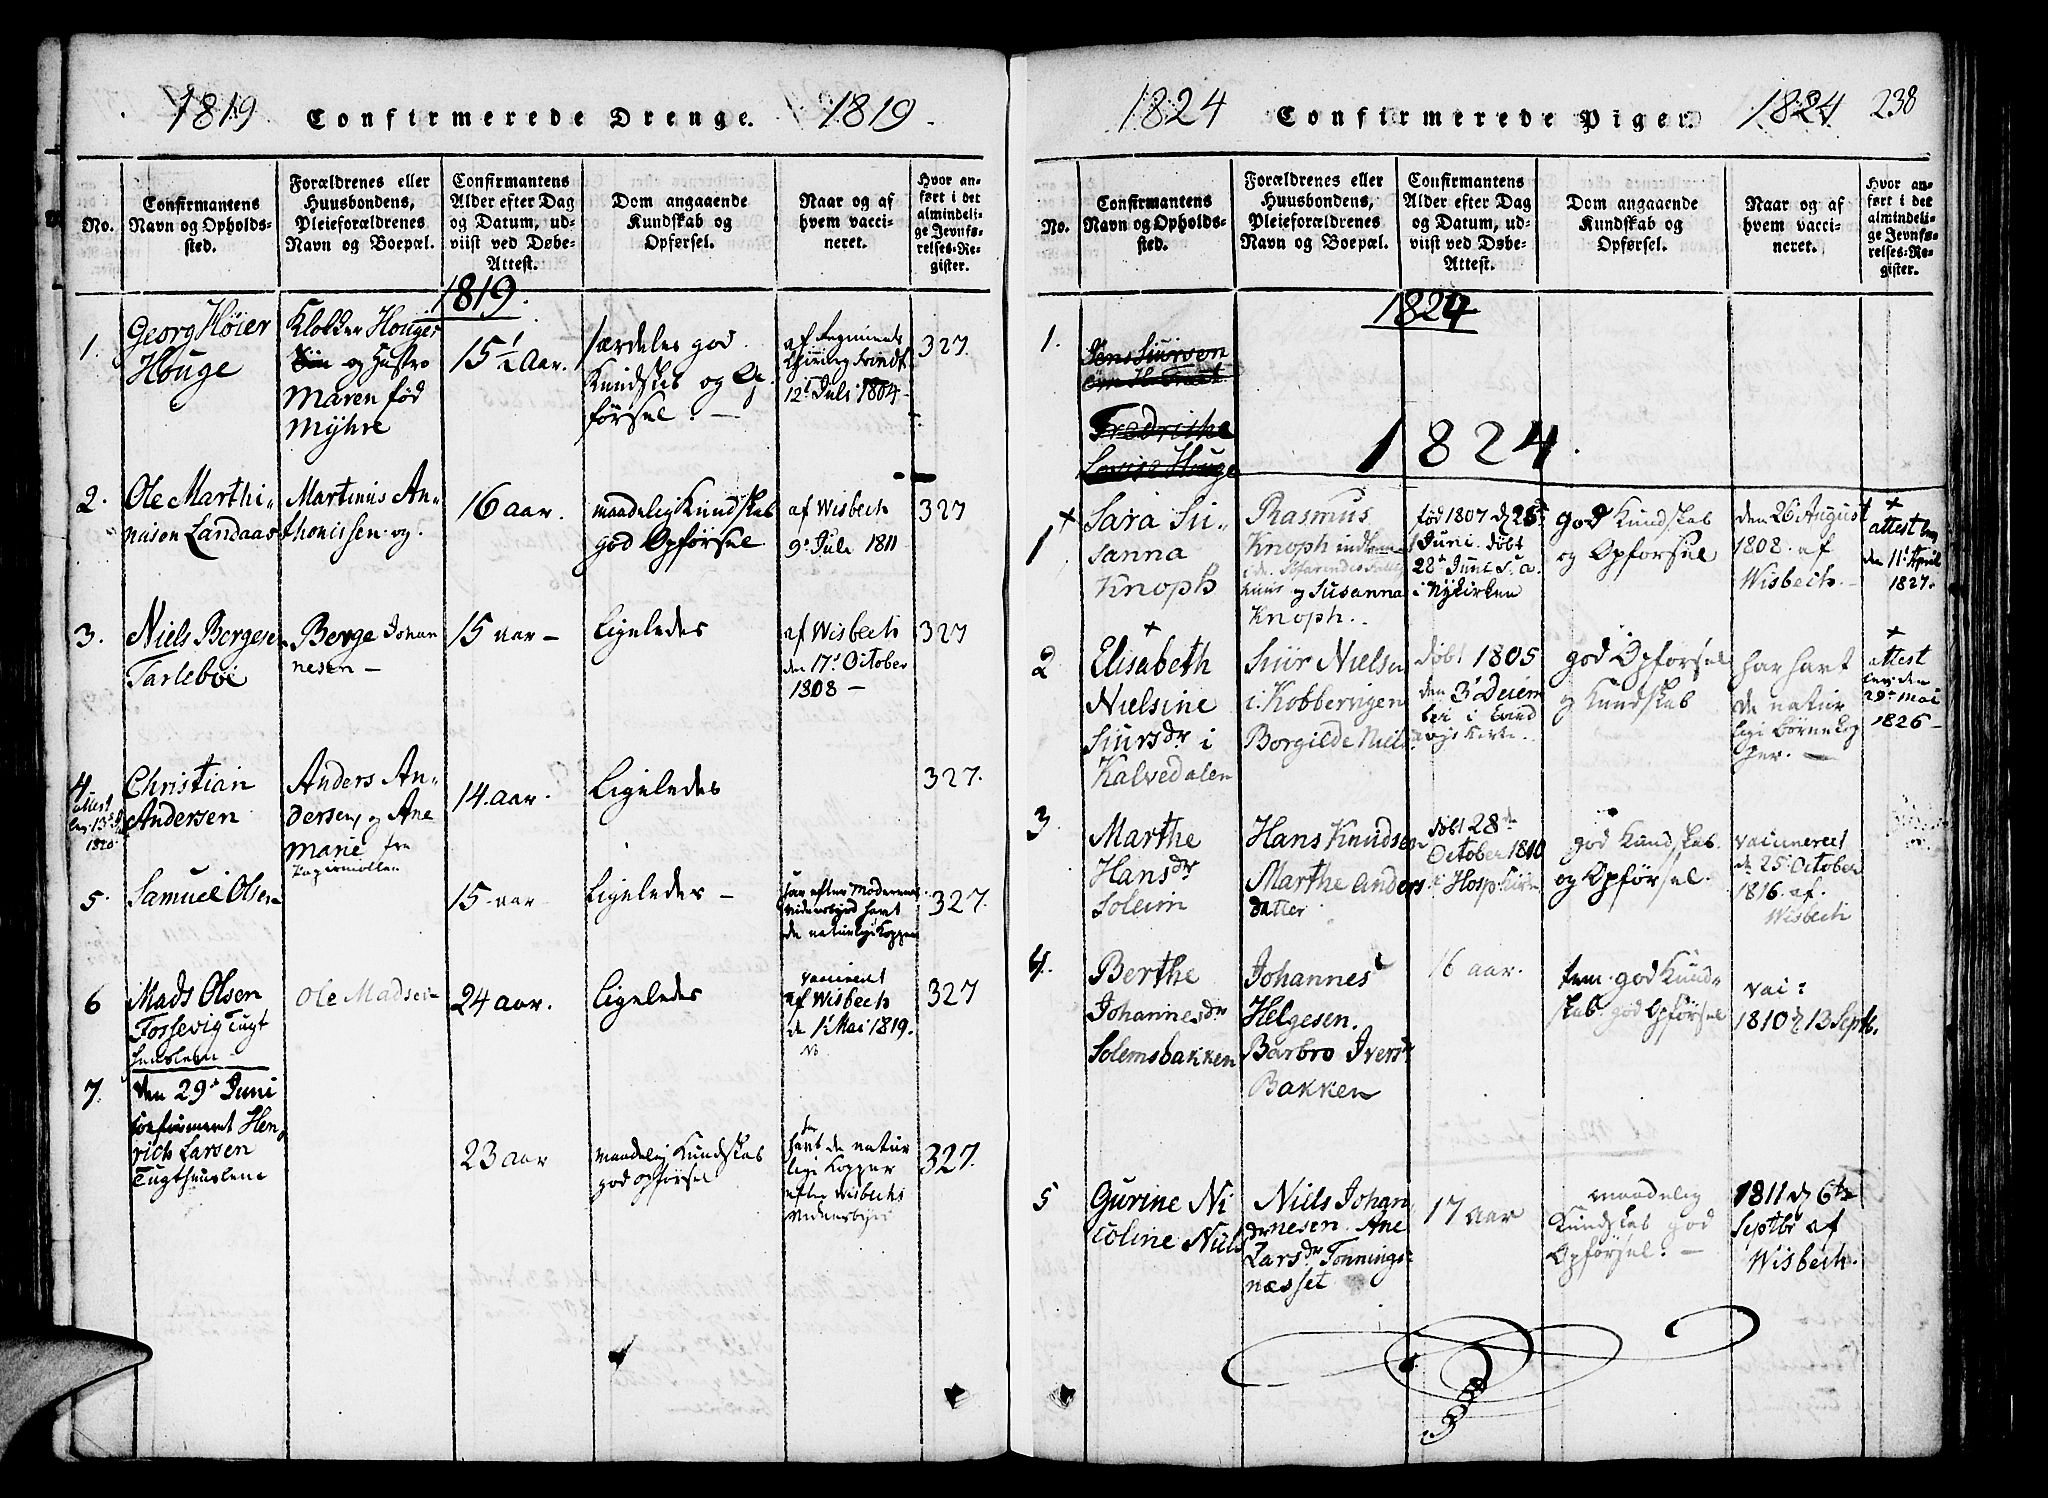 1819 Confirmerede Drenge. 1819.
No.
Confirmantens
Navn og Opholds-
sted.
Forældrenes eller
Huusbondens,
Pleieforældrenes
Navn og Boepæl.
Confirmantens
Alder efter Dag
og Datum, ud-
viist ved Døbe-
Attest.
Dom angaaende
Kundskab og
Opførsel.
Naar og af
hvem vacci-
neret.
Hvor an-
ført i det
almindeli-
ge Jevnfø-
relses-Re-
gister.
1819.
1.
Georg Høier
Houge
Klokker Houges
og Hustro
Maren fød
Myhre
15 1/2 Aar.
særdeles god
Kundskab og Op
førsel. -
12t Juli 1804
327.
2.
Ole Marthi-
nason Landaas
Martinus An-
thonissen og.
16 aar.
maadelig Kundskab
god Opførsel
af Wisbech
9d Jule 1811
327
3.
Niels Borgesen
Tarlebøe
Børge Johan
nesen -
15 aar -
Ligeledes
af Wisbech
den 17d October
1808 -
327
4
attest
1820
Christian
Andersen
Anders An-
dersen, og Ane
Marie fra
Papirmøllen
14 aar.
Ligeledes
327.
5.
Samuel Olsen
15 aar
Ligeledes -
har efter Moderens
Vidnesbyrd havt
de naturligi Kopper
327.
6
Mads Olsen
Fossevig Tugt
huuslem
Ole Madsen
24 aar.
Ligeledes
vaccineret
af Wisbech
de 1 Mai 1819.
327
7.
den 29d Juni
confirmeret Hen
rich Larsen
Tugthuuslem
23 aar
maadelig Kundskab
god opførsel
havt de natur
ligi Kopper
efter Wisbechs
Vidnesbyrd
327.
1824 Confirmerede Piger. 1824 238
No.
Confirmantens
Navn og Opholds-
sted.
Forældrenes eller
Huusbondens,
Pleieforældrenes
Navn og Boepæl.
Confirmantens
Alder efter Dag
og Datum, ud-
viist ved Døbe-
Attest.
Dom angaaende
Kundskab og
Opførsel.
Naar og af
hvem vacci-
neret.
Hvor an-
ført i det
almindeli-
ge Jevnfø-
relses-Re-
gister.
1824
1.
Jens Siurson
Fredrikke
Lovise Houge
1824.
1
Sara Su-
sanna
Knoph
Rasmus
Knoph
huus og Susanna
Knoph.
fød 1807 d 25
Juni. døbt
28d Juni s. a.
i Nykirken
god Kundskab
og Opførsel
den 26 August
1808. af
Wisbech.
attest
den 11t April
1827.
2
Elisabeth
Nielsine
Siursdr i
Kalvedalen
Siur Nielsen
i Kobbervigen
Borgilde Niels
døbt 1805
den 3d Decem
ber i Evind
vigs Kirke.
god Opførsel
og Kundskab
har havt
de natur
ligi Børnekop
per. -
attest
lev. den
29d Mai
1826 -
3
Marthe
Hansdr
Soleim
Hans Knudsen
Marthe Anders
datter
døbt 28de
October 1810
i Hosp Kirke
god Kundskab
og Opførsel.
vaccineret
d 25 October
1816 af.
Wisbech
4.
Berthe
Johannesdr
Solemsbakken
Johannes
Helgesen.
Barbro Ivers
Bakken
16 aar.
tem. god Kund-
skab god Opførsel
vac:
1810 d 13 Septb.
5
Gurine Ni
coline Niels
dr
Niels Johan
nesen. Ane
Larsdr Tonnings-
næsset
17 aar
maadelig
Kundskab god
Opførsel. -
1811 d 6te
Septbr af
Wisbech.